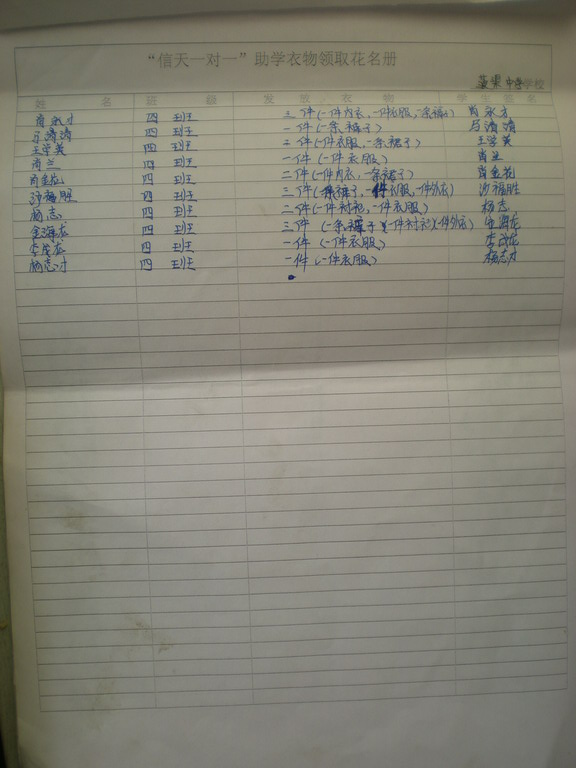 “信天一对一”助学衣物领取花名册
中学学校
姓 名 班 级 发 放 衣 物 学 生 签 名
肖永才 四 班 三件(一件内衣,一件衣服,一条裤) 肖永才
马清清 四 班 一件(一条裤子) 马清清
王学英 四 班 二件(一件衣服,一条裙子) 王学英
肖兰 四 班 一件(一件衣服) 肖兰
肖金花 四 班 二件(一件内衣,一条裙子) 肖金花
沙福胜 四 班 三件(一条裤子,一件衣服,一件外衣) 沙福胜
杨志 四 班 二件(一件衬袍,一件衣服) 杨志
金海龙 四 班 三件 (一条裤子,一件衬衣,一件外衣) 金海龙
李茂龙 四 班 一件 (一件衣服) 李茂龙
杨志才 四 班 一件 (一件衣服) 杨志才